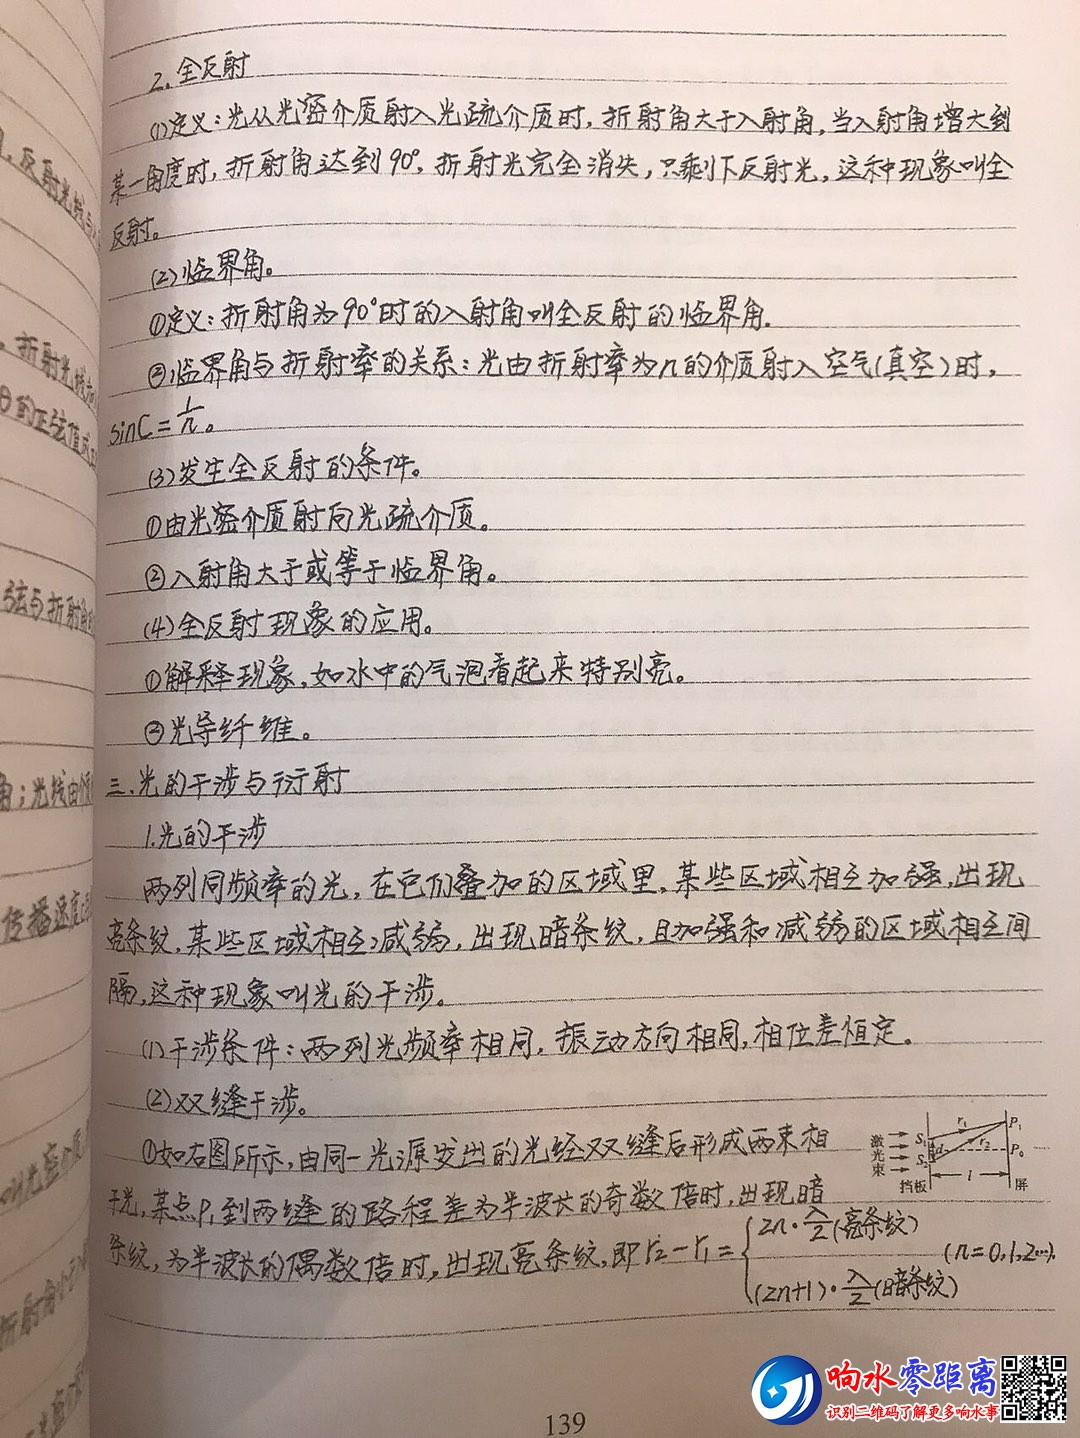 2.全反射
(1)定义:光从光密介质射入光疏介质时,折射角大于入射角,当入射角增大到
某一角度时,折射角达到90°,折射光完全消失,只剩下反射光,这种现象叫全
反射。
(2)临界角。
①定义:折射角为90°时的入射角叫全反射的临界角.
②临界角与折射率的关系:光由折射率为n的介质射入空气(真空)时,
sinC=1/n。
(3)发生全反射的条件。
①由光密介质射向光疏介质。
②入射角大于或等于临界角。
(4)全反射现象的应用。
①解释现象,如水中的气泡看起来特别亮。
②光导纤维。
三.光的干涉与衍射
1.光的干涉
两列同频率的光,在它们叠加的区域里,某些区域相互加强,出现
亮条纹,某些区域相互减弱,出现暗条纹,且加强和减弱的区域相互间
隔,这种现象叫光的干涉。
(1)干涉条件:两列光频率相同,振动方向相同,相位差恒定。
(2)双缝干涉。
①如右图所示,由同一光源发出的光经双缝后形成两束相
干光,某点P₁到两缝的路程差为半波长的奇数倍时,出现暗
条纹,为半波长的偶数倍时,出现亮条纹,即r₂-r₁={2n·λ/2(亮条纹)
(2n+1)·λ/2(暗条纹)
(n=0,1,2…).
激光束
S₁
S₂
d
r₁
r₂
P₁
P₀
l
挡板
屏
反射光线与
折射光线
的正弦值成
弦与折射角
角;光线由
传播速度
139
响水零距离
识别二维码了解更多响水事